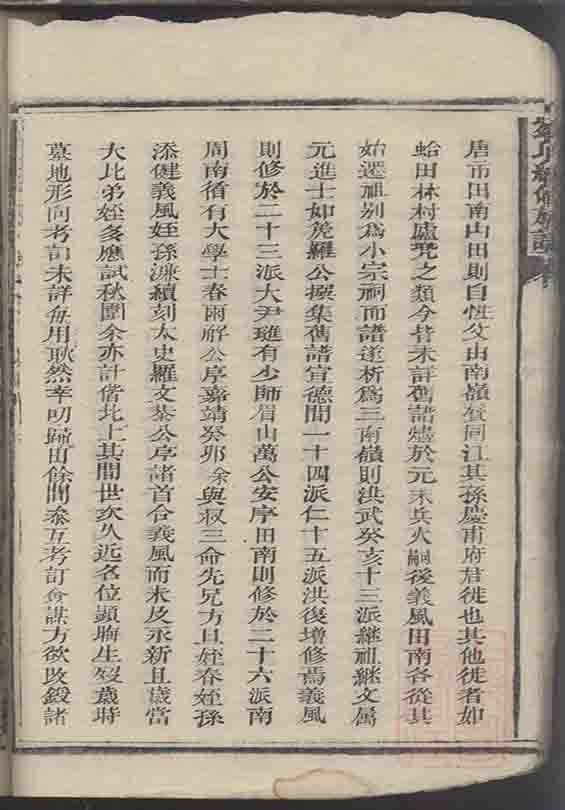 唐市田南山田則自恆父由南嶺登同江其孫慶甫府君徙也其他徙者如
蛤田林村廬咒之類今昔未詳舊譜燼於元末兵火嗣後義風田南各從其
始遷祖別爲小宗祠而譜遂析爲三南嶺則洪武癸亥十三派繼祖繼文屬
元進士如箎羅公撰集舊譜宣德間一十四派仁十五派洪後增修焉義風
則修於二十三派大尹璡有少師眉山萬公安序田南則修於二十六派南
周南復有大學士春雨解公序嘉靖癸卯余與叔三命先兄方且姪春姪孫
添健義風姪孫濂續刻太史羅文恭公序諸首合義風而未及永新且歲當
大比弟姪多應試秋闈余亦計偕北上其間世次久近名位顯晦生歿歲時
墓地形向考訂未詳每用耿然幸叨歸田餘間參互考訂僉謀方欲改鋟諸
氏續修族譜